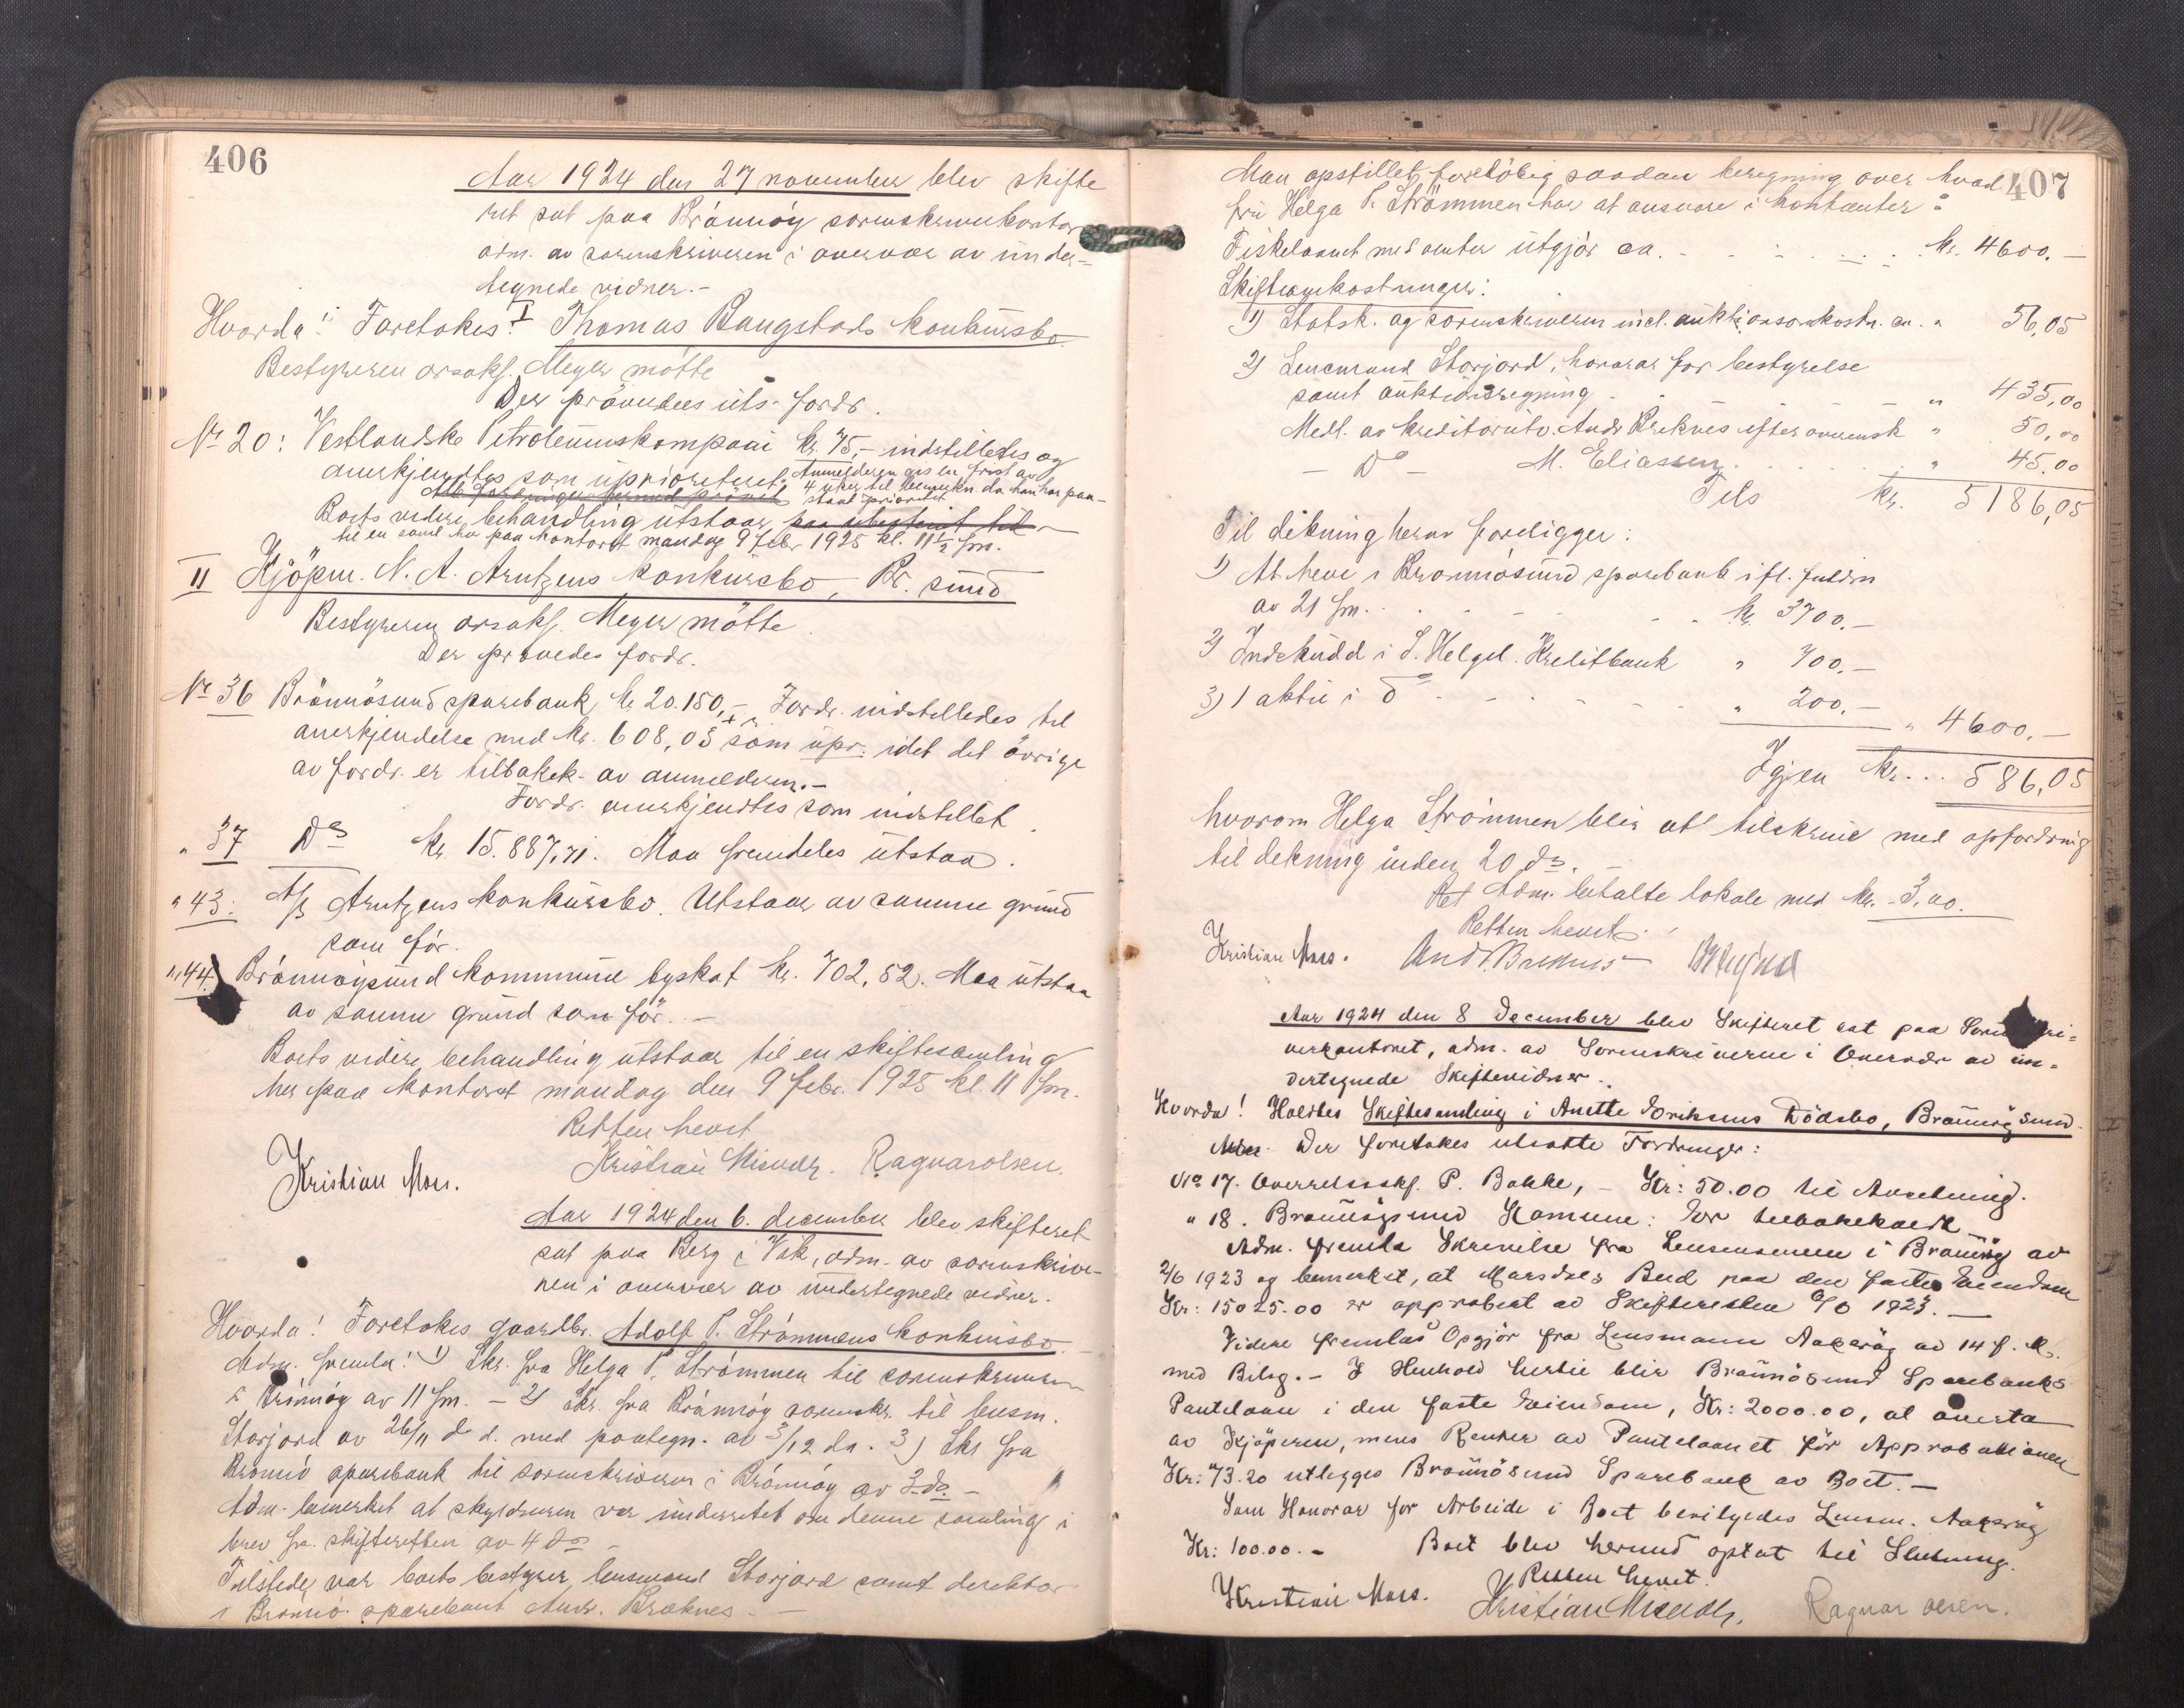 406
Aar 1924 den 27 november blev skifte
ret sat paa Brönnöy sorenskriverkontor
adm. av sorenskriveren i overvær av under-
tegnede vidner.-
Hvorda! Foretokes: I Thomas Baugstads konkursbo.
Bestyreren orsakf. Meyer mötte
Der prövedes uts. fordr.
Nr 20: Vestlandske Petroleumskompani kr. 75,- indstilledes og
anerkjendtes som uprioritert. Anmelderen gis en frist av
4 uker til bemerkn. da han har paa-
staat prioritet
Alle fordringer hermed prövet
Boets videre behandling utstaar paa ubestemt tid
til en saml. her paa kontoret mandag 9 febr 1925 kl. 11 1/2 fm.
II Kjöpm. N. A. Arntzens konkursbo, Br. sund
Bestyreren orsakf. Meyer mötte.
Der prövedes fordr.
Nr 36 Brönnösund sparebank kr 20.150,- Fordr. indstilledes til
anerkjendelse med kr. 608,05 som upr. idet det övrige
av fordr. er tilbakek. av anmelderen.-
Fordr. anerkjendtes som indstillet.
" 37 Do kr 15.887,71. Maa fremdeles utstaa.
" 43: A/S Arntzens konkursbo. Utstaar av samme grund
som för.
" 44. Brönnöysund kommune byskat kr. 702,52. Maa utstaa
av samme grund som för. -
Boets videre behandling utstaar til en skiftesamling
her paa kontoret mandag den 9 febr. 1925 kl. 11 fm.
Retten hevet
Kristian Moes. Kristian Ragnar Olsen.
Aar 1924 den 6. december blev skifteret
sat paa Berg i Vik, adm. av sorenskrive-
ren i overvær av undertegnede vidner.
Hvorda! Foretokes gaardbr. Adolf P. Strömmens konkursbo.
Adm. fremla: 1) Skr. fra Helga P. Strömmen til sorenskriveren
i Brönnöy av 11 fm. - 2) Skr. fra Brönnöy sorenskr. til lensm.
Storjord av 26/11 d. d. med paategn. av 3/12 ds. 3) Skr fra
Brönnö sparebank til sorenskriveren i Brönnöy av 3 ds. -
Adm. bemerket at skyldneren var underrettet om denne samling i
brev fra skifteretten av 4 ds -
Tilstede var boets bestyrer lensmand Storjord samt direktör
i Brönnö. sparebank Andr. Breknes -
407
Man opstillet forelöbig saadan beregning over hvad
fru Helga P. Strömmen har at ansvare i kontanter:
Fiskelaanet med renter utgjör ca. . . . . . kr. 4600.-
Skifteomkostninger:
1) Statsk. og sorenskriveren incl. auktionsomkostn. ca. " 56,05
2) Lensmand Storjord, honorar for bestyrelse
samt auktionsregning . . . - - - " 435,00
Medl. av kreditorutv. Andr Breknes efter overensk " 50,00
- Do - M. Eliassen. . . . . . " 45.00
Tils kr. 5186,05
Til dekning herav foreligger:
1) At heve i Brönnösund sparebank ifl. fuldm
av 21 fm. . . . . . kr 3700.-
2) Indskudd i S. Helgel. Kreditbank " 700.-
3) 1 aktie i do . . . . . " 200.- " 4600.-
Igjen kr... 586,05
hvorom Helga Strömmen blir at tilskrive med opfordring
til dekning inden 20 ds. -
Adm. betalte lokale med kr. 3,00.
Retten hevet
Kristian Moes. Andr. Breknes
Aar 1924 den 8 December blev Skifteret sat paa Sorenskri-
verkontoret, adm. av Sorenskriveren i Overvær av un-
dertegnede Skiftevidner.
Hvorda! Holdtes Skiftesamling i Anette Eriksens Dödsbo, Brönnöysund.
Der foretokes utsatte Fordringer:
No 17. Overretssakf. P. Bakke, - Kr: 50.00 til
" 18. Brönnöysund Komune: Er tilbakekaldt
Adm. fremla Skrivelse fra Lensmannen i Brönnöy av
2/6 1923 og bemerket, at Bud paa den faste Eiendom
Kr: 15025.00 er approbert av Skifteretten 6/6 1923. -
Videre fremlas Opgjör fra Lensmann av 14 f. M.
med Bilag. - I Henhold hertil blir Brönnösund Sparebanks
Pantelaan i den faste Eiendom, Kr: 2000.00, at overta
av Kjöperen, mens Renter av Pantelaanet för Approbationen
Kr: 73.20 utlegges Brönnösund Sparebank av Boet. -
Som Honorar for Arbeide i Boet bevilgedes Lensm.
Kr: 100.00. - Boet blev hermed optat til Slutning.
Retten hevet.
Kristian Moes. Kristian Ragnar Olsen.